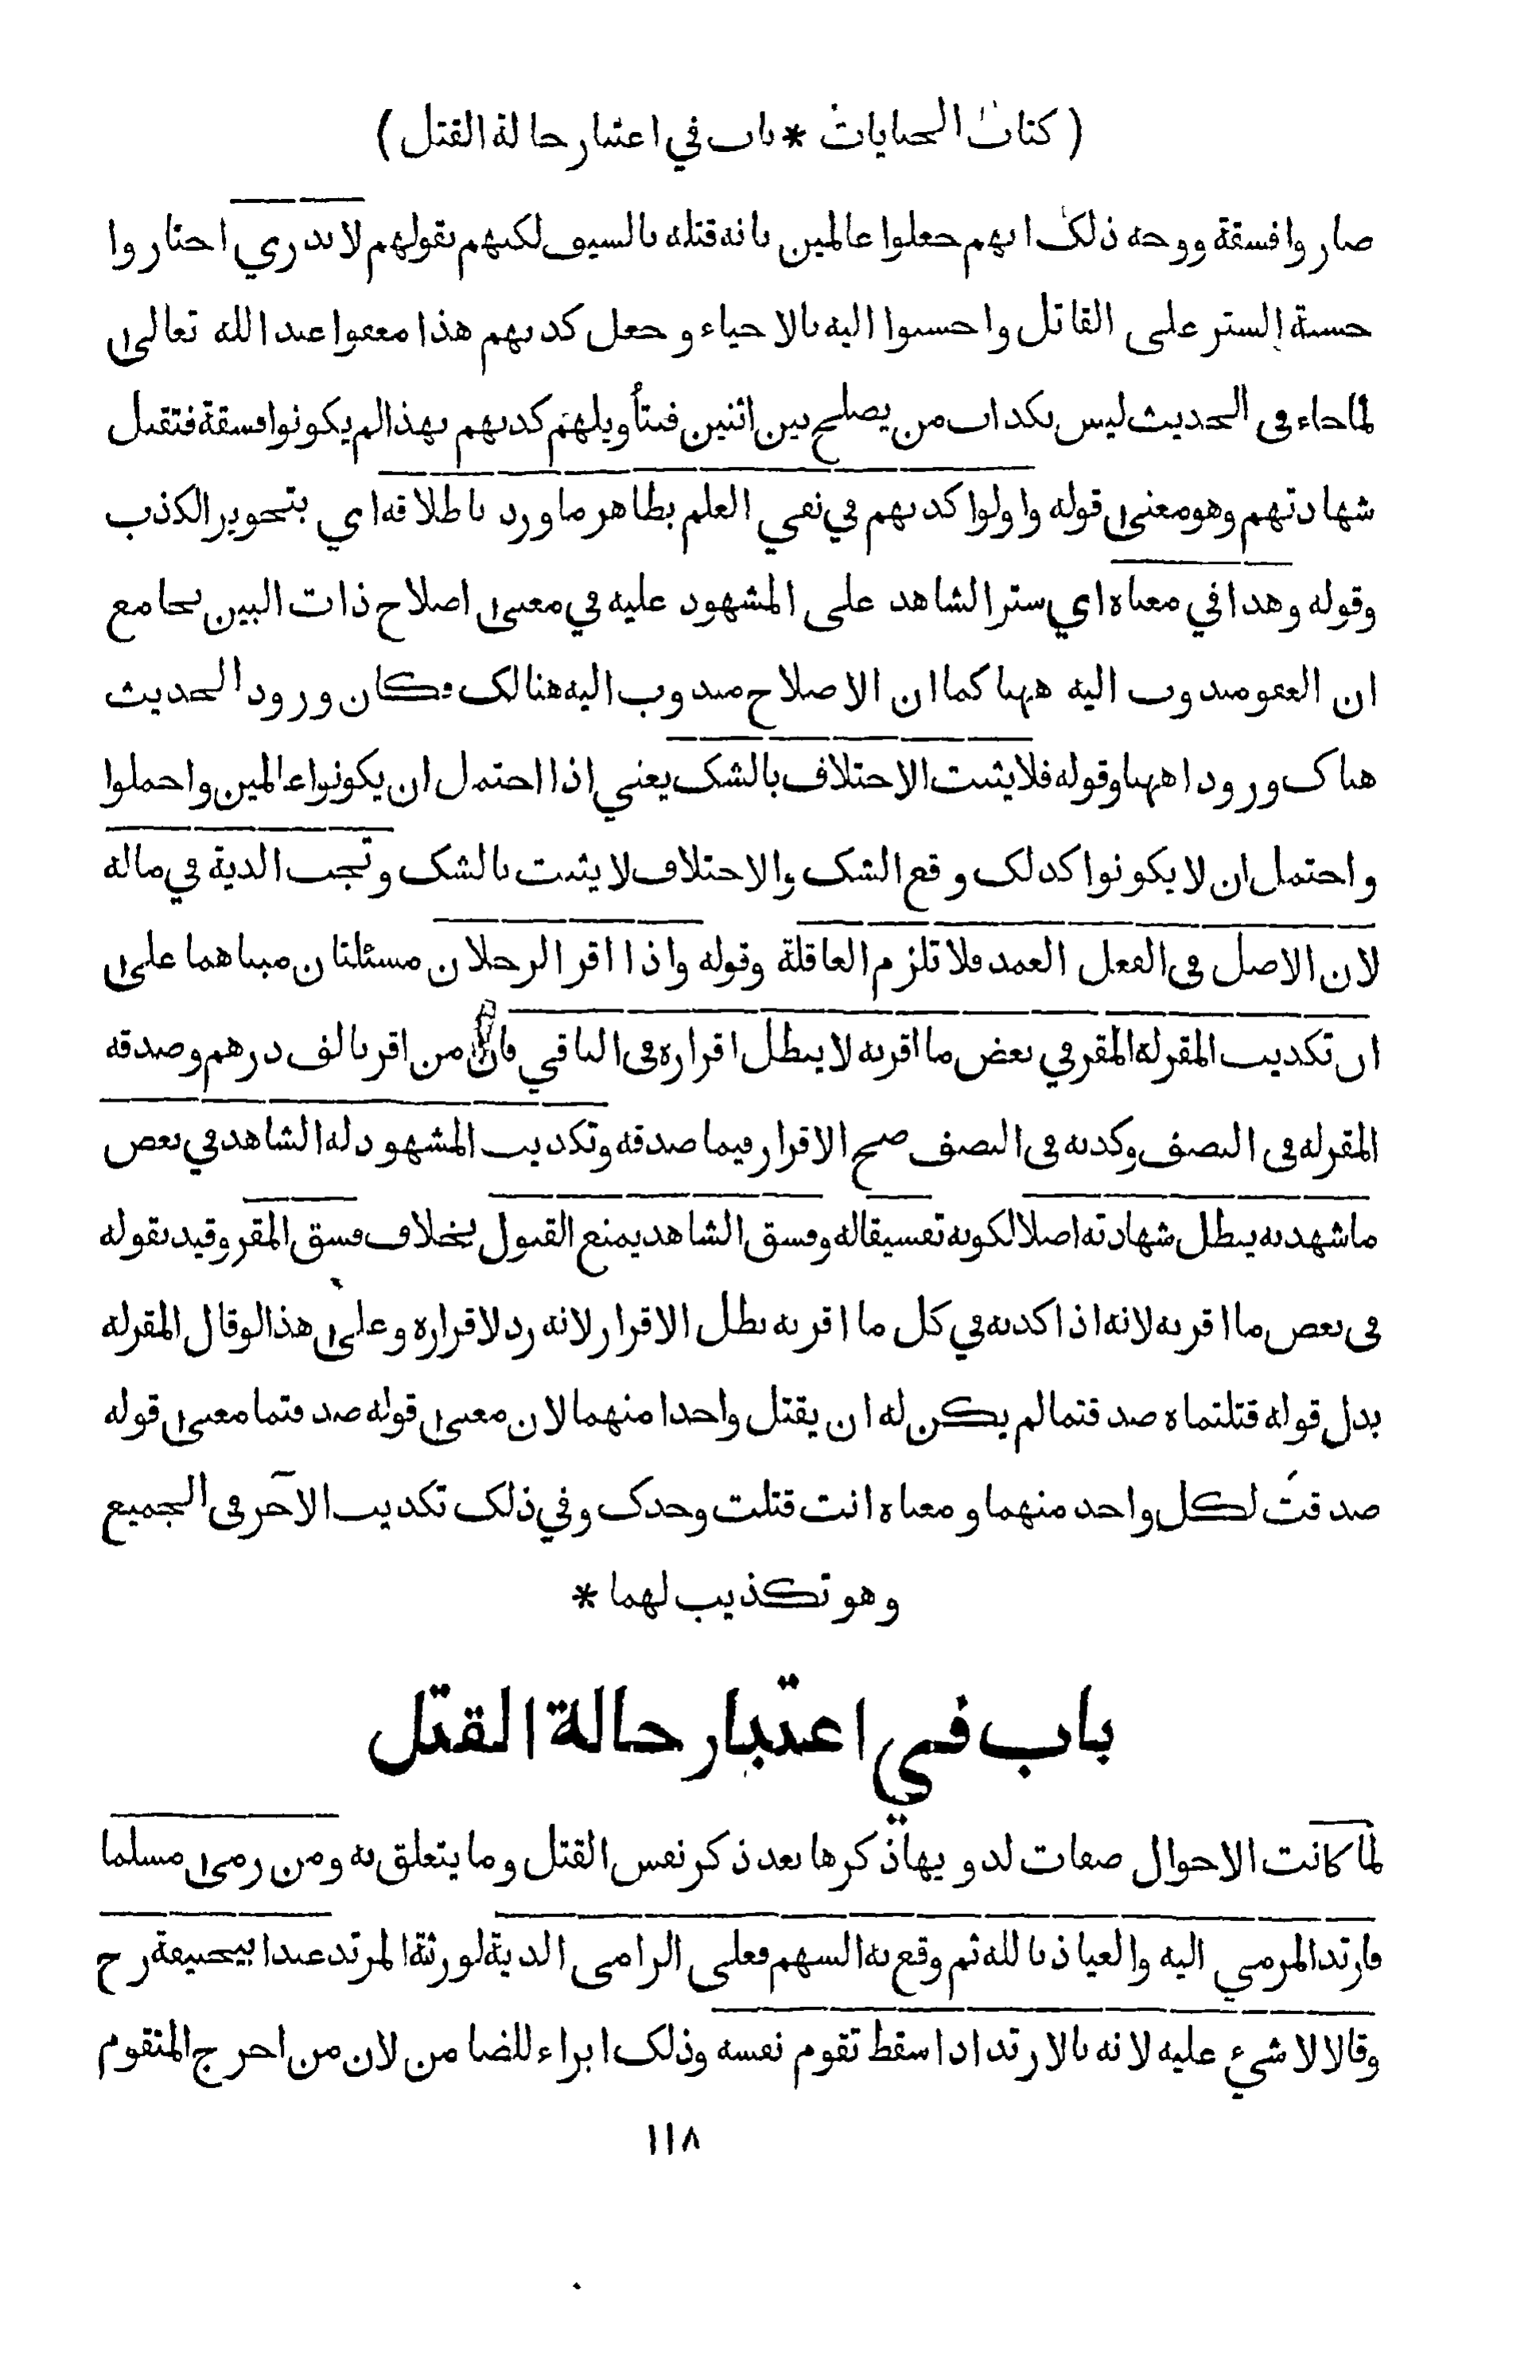 ( كتاب الجنايات * باب في اعتبار حالة القتل )
صاروا فسقة ووجه ذلك انهم جعلوا عالمين بانه قتله بالسيف لكنهم بقولهم لا ندري اختاروا
حسبة الستر على القاتل واحسنوا اليه بالاحياء وجعل كذبهم هذا معفوا عند الله تعالى
لما جاء في الحديث ليس بكذاب من يصلح بين اثنين فبتأويلهم كذبهم بهذا لم يكونوا فسقة فتقبل
شهادتهم وهو معنى قوله واولوا كذبهم في نفي العلم بظاهر ما ورد باطلاقه اي بتجويز الكذب
وقوله وهذا في معناه اي ستر الشاهد على المشهود عليه في معنى اصلاح ذات البين بجامع
ان العفو مندوب اليه ههنا كما ان الاصلاح مندوب اليه هنالك فكان ورود الحديث
هناك ورودا ههنا وقوله فلا يثبت الاختلاف بالشك يعني اذا احتمل ان يكونوا عالمين واجملوا
واحتمل ان لا يكونوا كذلك وقع الشك والاختلاف لا يثبت بالشك وتجب الدية في ماله
لان الاصل في الفعل العمد فلا تلزم العاقلة وقوله واذا اقر الرجلان مسئلتان مبناهما على
ان تكذيب المقر له المقر في بعض ما اقر به لا يبطل اقراره في الباقي فان من اقر بالف درهم وصدقه
المقر له في النصف وكذبه في النصف صح الاقرار فيما صدقه وتكذيب المشهود له الشاهد في بعض
ما شهد به يبطل شهادته اصلا لكونه تفسيقا له وفسق الشاهد يمنع القبول بخلاف فسق المقر وقيد بقوله
في بعض ما اقر به لانه اذا كذبه في كل ما اقر به بطل الاقرار لانه رد لاقراره وعلى هذا لو قال المقر له
بدل قوله قتلتماه صدقتما لم يكن له ان يقتل واحدا منهما لان معنى قوله صدقتما معنى قوله
صدقت لكل واحد منهما ومعناه انت قتلت وحدك وفي ذلك تكذيب الآخر في الجميع
وهو تكذيب لهما *
باب في اعتبار حالة القتل
لما كانت الاحوال صفات لذويها ذكرها بعد ذكر نفس القتل وما يتعلق به ومن رمى مسلما
فارتد المرمي اليه والعياذ بالله ثم وقع به السهم فعلى الرامي الدية لورثة المرتد عند ابيحنيفة رح
وقالا لا شيء عليه لانه بالارتداد اسقط تقوم نفسه وذلك ابراء للضامن لان من اخرج المتقوم
١١٨